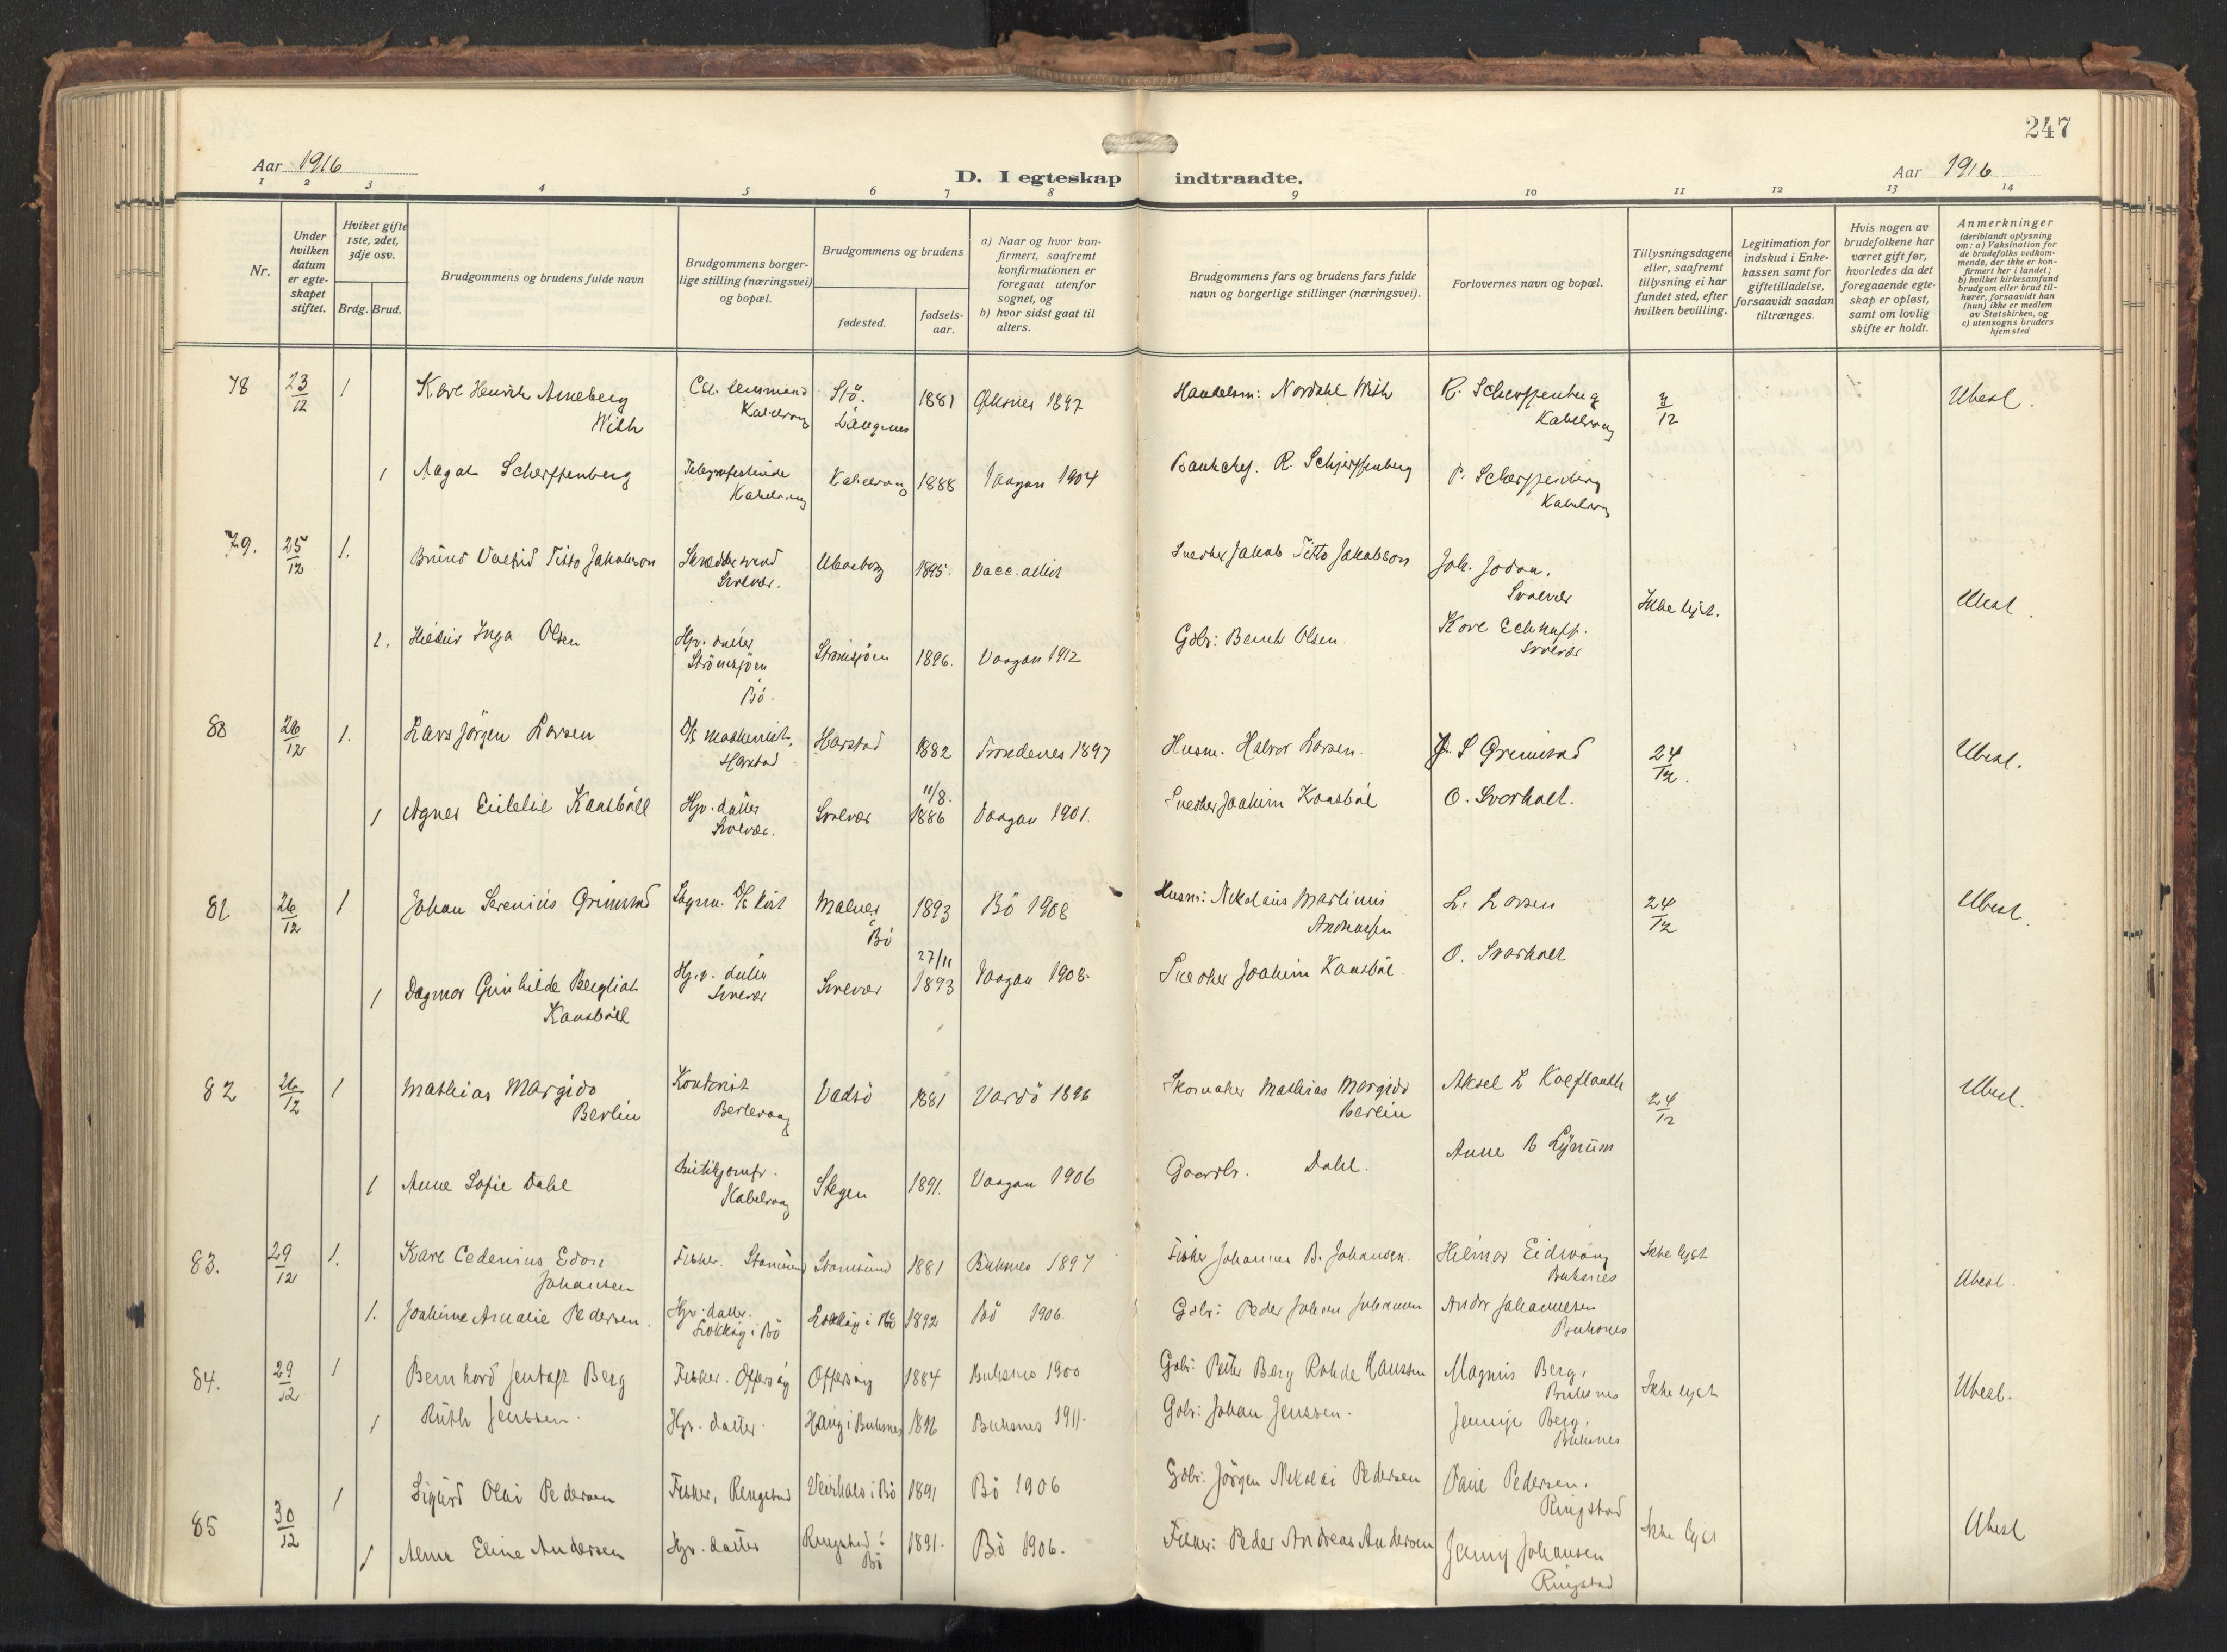 247
Aar 1916
D. I egteskap indtraadte.
Aar 1916
1 2 3 4 5 6 7 8 9 10 11 12 13 14
Nr.
Under hvilken datum er egteskapet stiftet.
Hvilket gifte 1ste, 2det, 3dje osv.
Brdg. Brud.
Brudgommens og brudens fulde navn
Brudgommens borgerlige stilling (næringsvei) og bopæl.
Brudgommens og brudens
fødested.
fødselsaar.
a) Naar og hvor konfirmert, saafremt konfirmationen er foregaat utenfor sognet, og
b) hvor sidst gaat til alters.
Brudgommens fars og brudens fars fulde navn og borgerlige stillinger (næringsvei).
Forlovernes navn og bopæl.
Tillysningsdagene eller, saafremt tillysning ei har fundet sted, efter hvilken bevilling.
Legitimation for indskud i Enkekassen samt for giftetilladelse, forsaavidt saadan tiltrænges.
Hvis nogen av brudefolkene har været gift før, hvorledes da det foregaaende egteskap er opløst, samt om lovlig skifte er holdt.
Anmerkninger
(deriblandt oplysning om: a) Vaksination for de brudefolks vedkommende, der ikke er konfirmert her i landet; b) hvilket kirkesamfund brudgom eller brud tilhører, forsaavidt han (hun) ikke er medlem av Statskirken, og c) utensogns bruders hjemsted
78 23/12 1 Karl Henrik Arneberg With Kabelvaag Stö. Langnes 1881 Öksnes 1897 Handelsm: Nordahl With R. Scherffenberg Kabelvaag 3/12 Ubesl.
1 Aagot Scherffenberg Kabelvaag Kabelvaag 1888 Vaagan 1904 Bankchef. R. Schjerffenberg P. Scherffenberg Kabelvaag
79. 25/12 1. Titto Jakobson Skrædder Svolvær. Uleaborg 1895. Vacc. attest Snedker Jakob Titto Jakobson Joh. Svolvær Ikke lyst. Ubesl.
1. Inga Olsen Hjv. datter Strömsjöen Bö. Strömsjöen 1896. Vaagan 1912 Gbr: Bernt Olsen. Kore Svolvær
80 26/12 1. Lars Jörgen Larsen D/S maskinist, Harstad Harstad 1882 Trondenes 1897 Husm. Halvor Larsen. J. S Grimstad 24/12. Ubesl.
1 Agnes Kansböll Hjv. datter Svolvær. Svolvær 11/8. 1886 Vaagan 1901. Snedker Joakim Kansböl O. Svarholt.
81 26/12 1 Johan Serenius Grimstad D/S Malnes Bö 1893 Bö 1908 Husm: Nikolaus Martinus Andreassen L. Larsen 24/12 Ubesl.
1 Dagmar Gunhilde Bergliot Kansböll Hjv. datter Svolvær Svolvær 27/11 1893 Vaagan 1908. Snedker Joakim Kansböl. O. Svarholt
82 26/12 1 Mathias Margido Berlin Kontorist Berlevaag Vadsö 1881 Vardö 1896 Skomaker Mathias Margido Berlin Aksel L 24/12 Ubesl.
1 Anne Sofie Dahl Butikjomfr. Kabelvaag Stegen 1891. Vaagan 1906 Gaardbr. Dahl. Anne B Lynum
83. 29/12 1. Karl Cedenius Edon Johansen Fisker. Stamsund Stamsund 1881 Buksnes 1897 Fisker Johannes B. Johansen. Hilmar Eidsvang Buksnes Ikke lyst Ubesl.
1. Joakime Amalie Pedersen. Hjv. datter. i Bö i Bö 1892 Bö 1906. Gbr: Peder Johan Johansen Andor Johannesen Buksnes
84. 29/12 1 Bernhard Jentoft Berg Fisker. Offersöy Offersöy 1884 Buksnes 1900 Gbr: Peter Berg Rohde Hansen Magnus Berg, Buksnes Ikke lyst Ubesl.
1 Ruth Jenssen. Hjv. datter. Haug i Buksnes 1896 Buksnes 1911. Gbr: Johan Jenssen. Jennije Berg, Buksnes
85 30/12 1 Sigurd Olai Pedersen Fisker, Ringstad Veirhals i Bö 1891 Bö 1906 Gbr: Jörgen Nikolai Pedersen Pedersen, Ringstad Ikke lyst Ubesl
1 Alma Eline Andersen Hjv. datter Ringstad i Bö 1891. Bö 1906. Fisker: Peder Andreas Andersen Jenny Johansen Ringstad